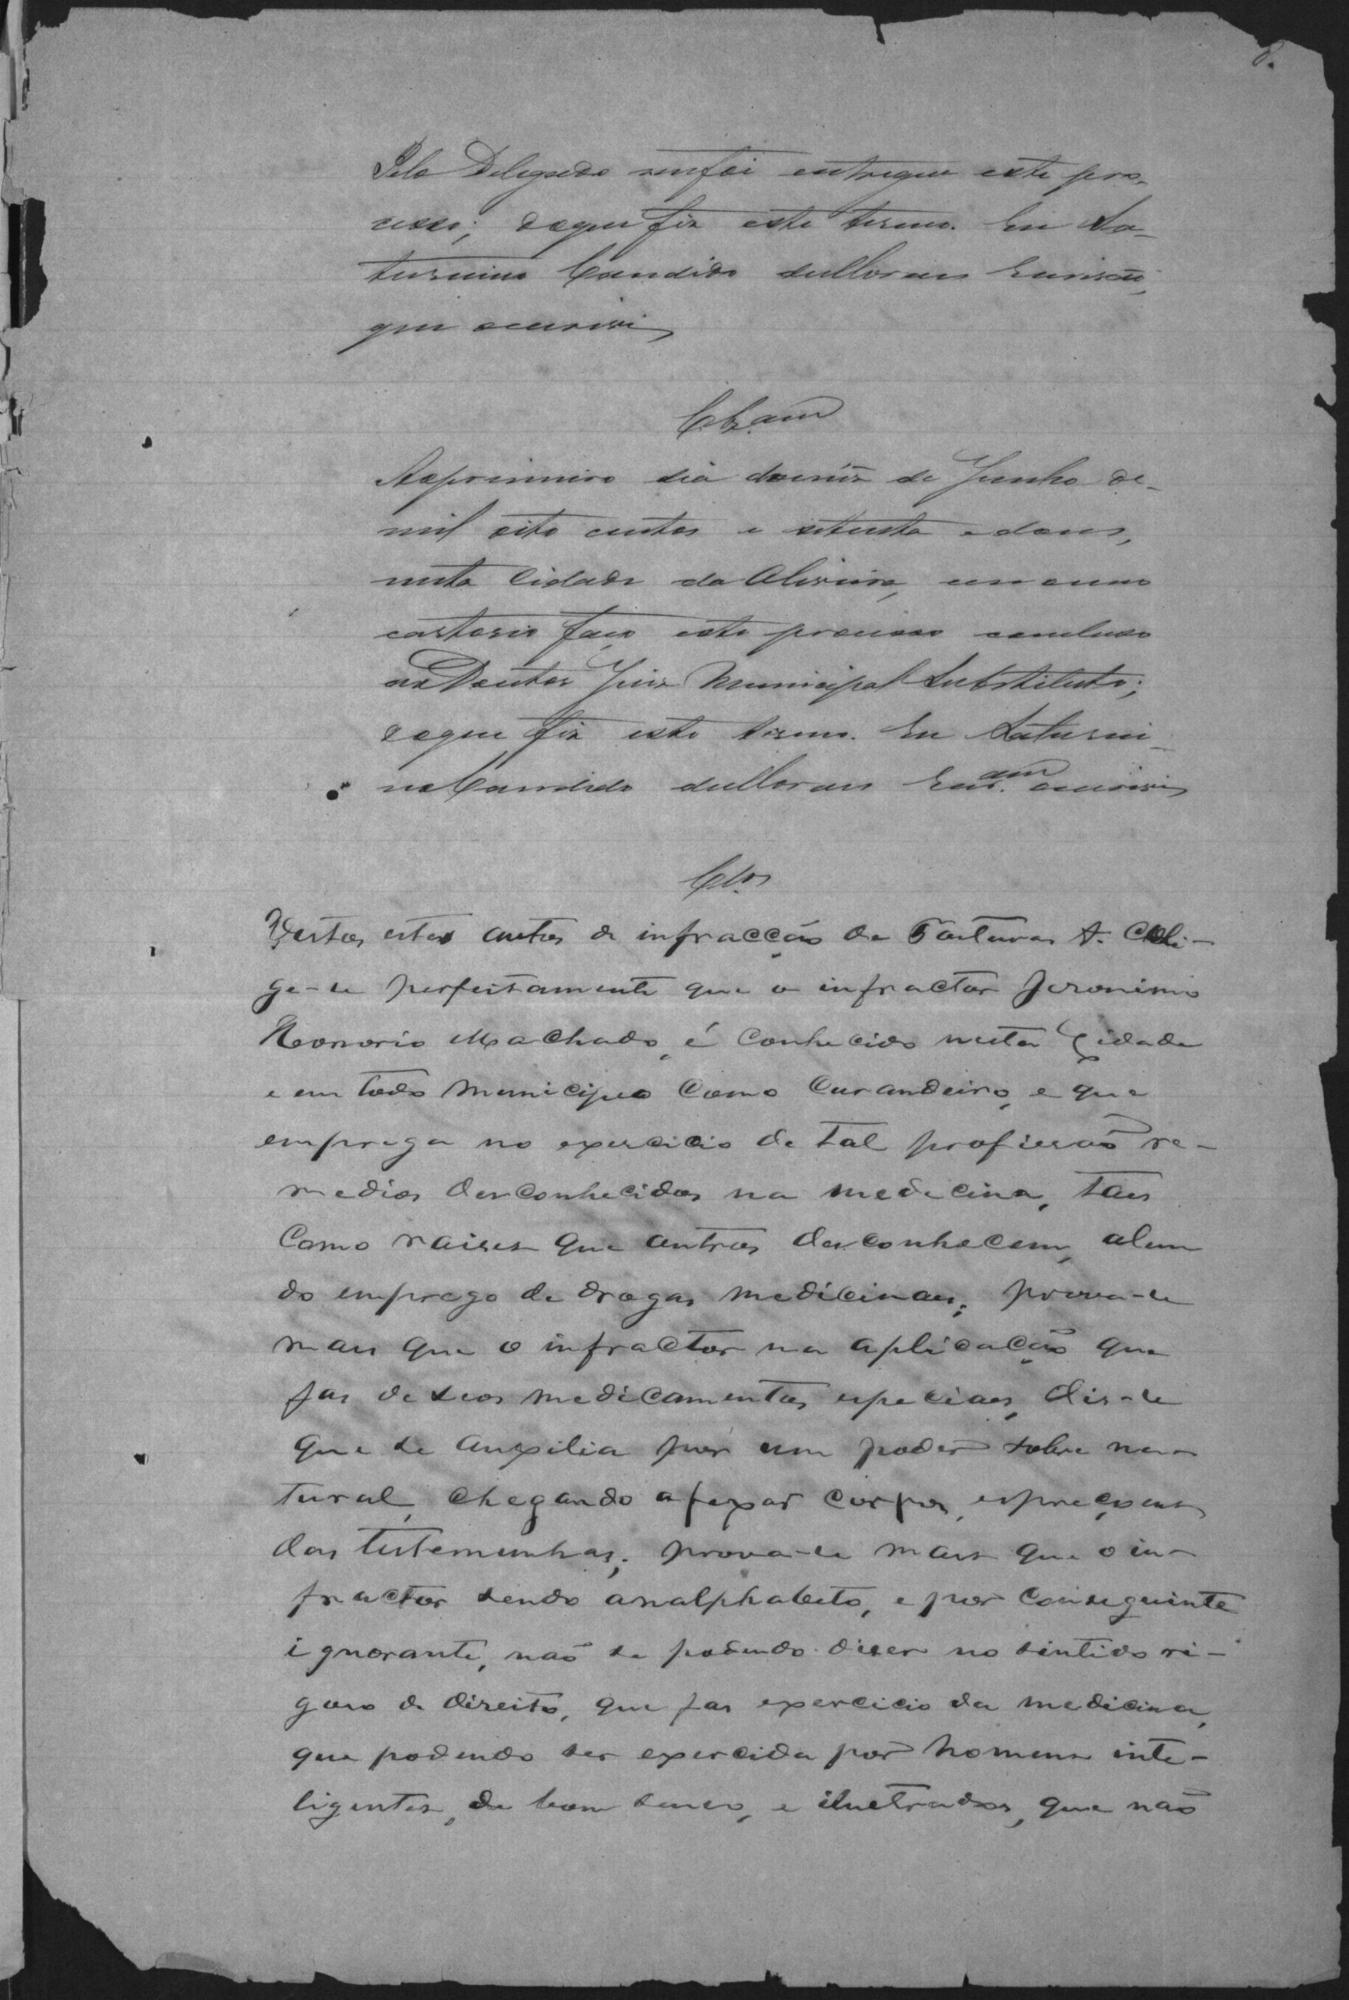 8.
Pelo Delegado me foi entregue este pro-
cesso; do que fiz este termo. Eu Sa-
turnino Candido de Moraes Escrivão,
que escrevi
Cls.am
Ao primeiro dia do mês de Junho de
mil oito centos e setenta e dous,
nesta Cidade da Oliveira, em meu
cartorio faço este processo concluso
ao Doutor Juiz Municipal Substituto;
do que fiz este termo. Eu Saturni-
no Candido de Moraes Escr.am escrevi
Cl.os
Vestos estes autos de infracção de Posturas &. Coli-
ge-se perfeitamente que o infractor Jeronimo
Honorio Machado, é conhecido nesta Cidade
e em todo Municipio como Curandeiro, e que
emprega no exercicio de tal profissão re-
medios desconhecidos na medecina, taes
como raises que outros desconhecem, alem
do emprego de drogas medicinaes; prova-se
mais que o infractor na aplicação que
fas de seos medicamentos especiaes, dis-se
que se auxilia por um poder sobre na-
tural, chegando a fexar corpos, espreçoens
das testemunhas; prova-se mais que o in-
fractor sendo analphabeto, e por conseguinte
ignorante, não se podendo diser no sentido ri-
goro de direito, que fas exercicio da medicina,
que podendo ser exercida por homens inte-
ligentes, de bom senço, e ilustrados, que não